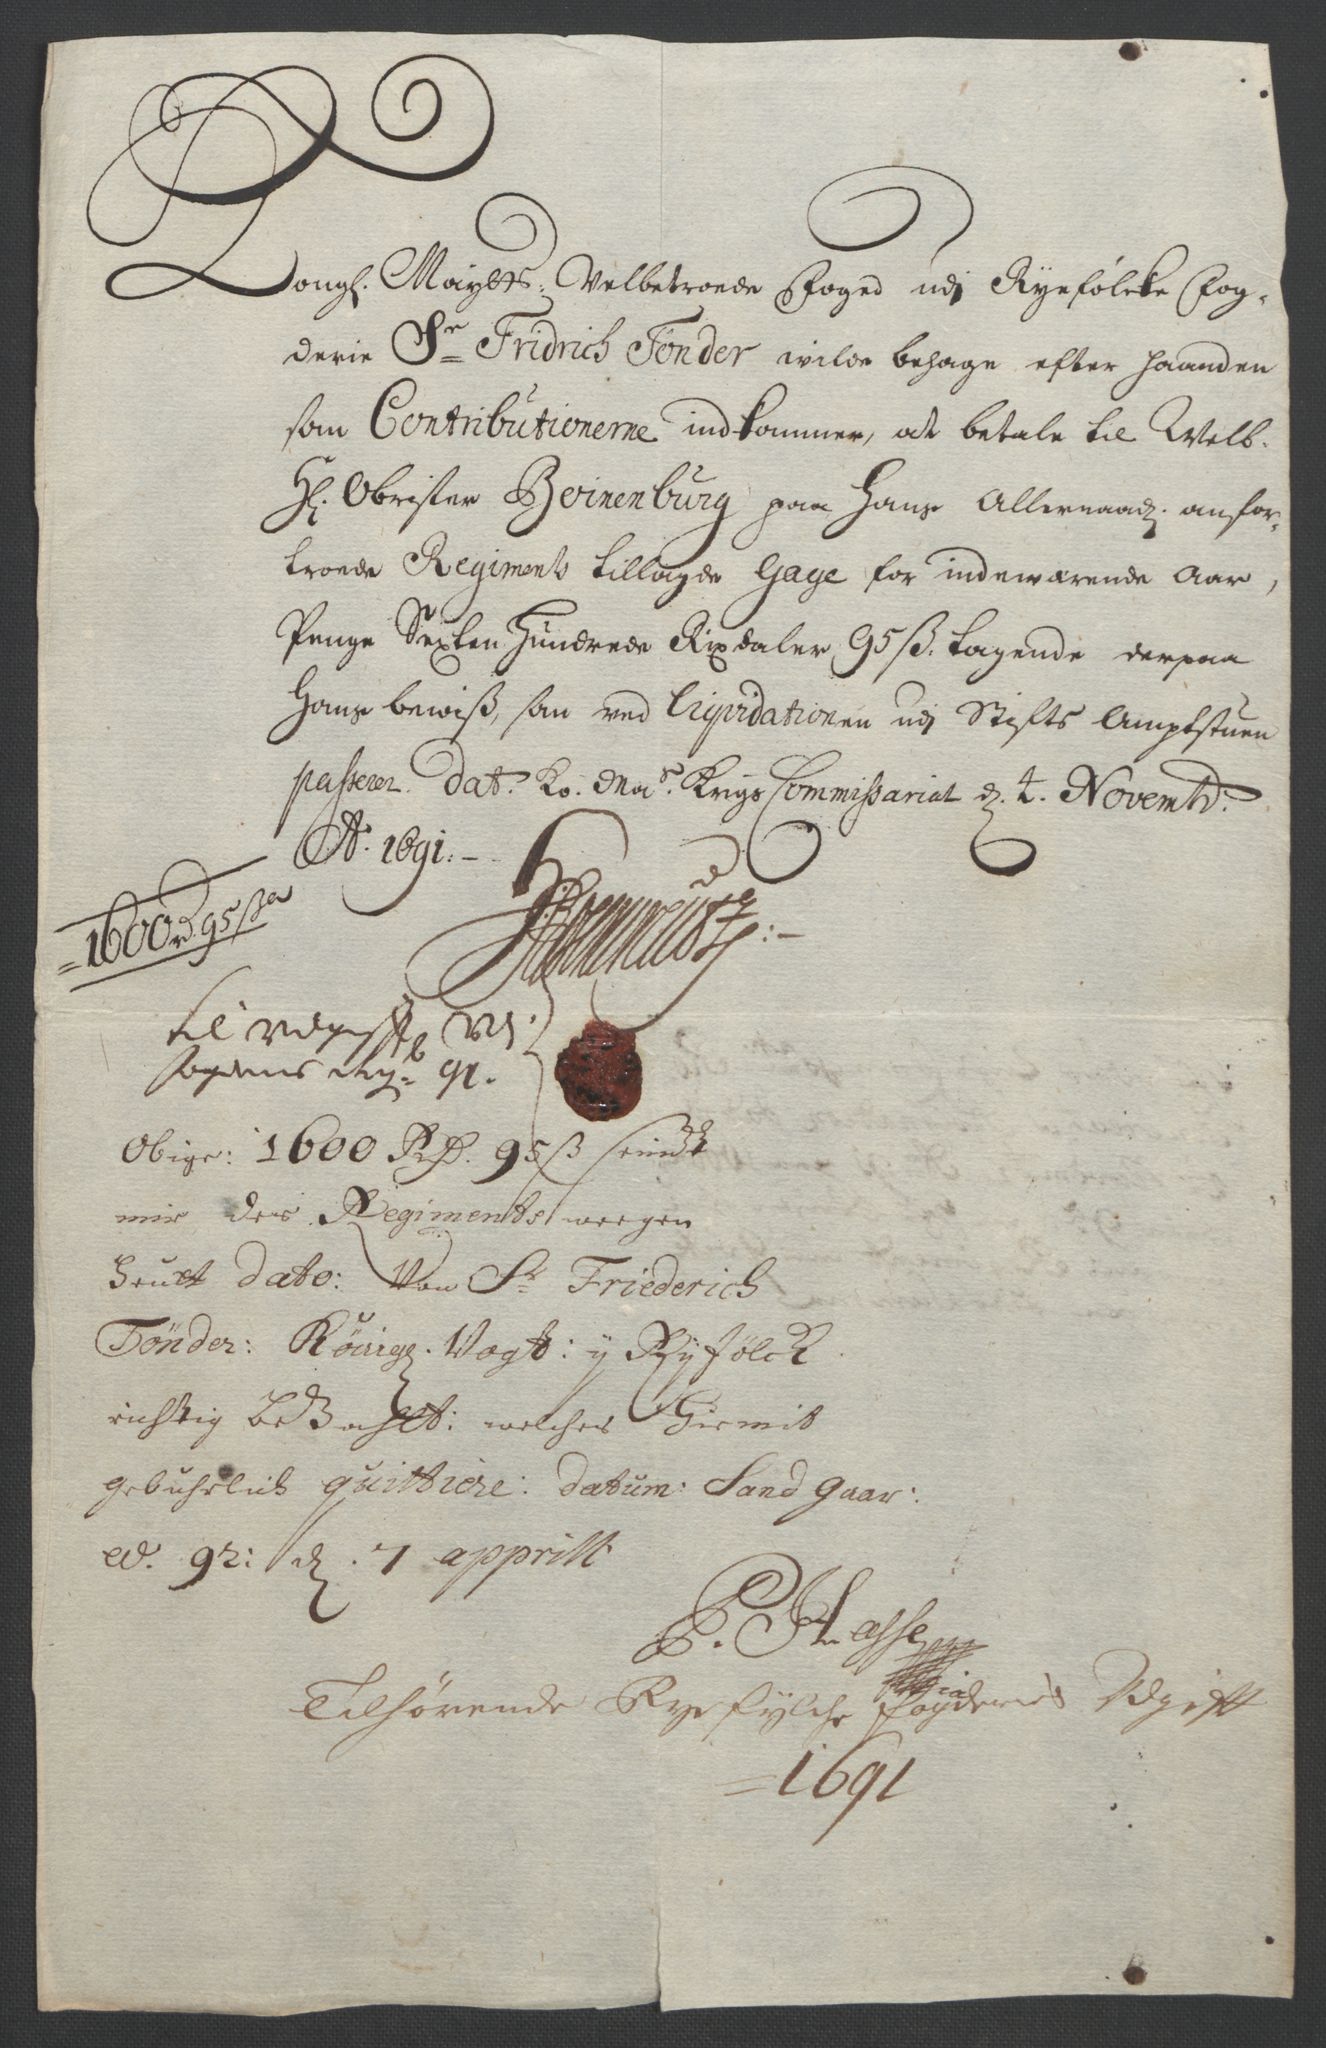 Kongl. Mayttz. Velbetroede Foged udj Ryefølcke Fog-
derie Sr Fridrich Tønder wilde behage efter haanden
som Contributionerne indkommer, at betale til Welb.
Hr. Obrister Boinenburg paa Hans Allernaadz. anfor-
troede Regiments tillagde Gage for indeværende Aar,
Penge Sexten Hundrede Rixdaler 95 ß. tagende derpaa
Hans bewiß, som ved Liqvidationen udj Stifts Amptstuen
passerer. Dat. Ko. Mas. Krigs Commissariat d. 2. Novembr.
Ao. 1691:-
1600 rd 95 ß
til Udgifft
Fogdens 91.
Obige: 1600 Rth. 95 ß seindt
mir des Regiments wegen
heutt dato: Von Sr Friederich
Tönder: Königl. Vogt: y Ryfölck
richtig beZahlt: welches Hiermit
gebuhrlich quittiere: datum: Sandgaar:
ao. 92: d. 7 apprill
P. Hasse
Tilhørende Ryefylche Fogderies Udgift
1691